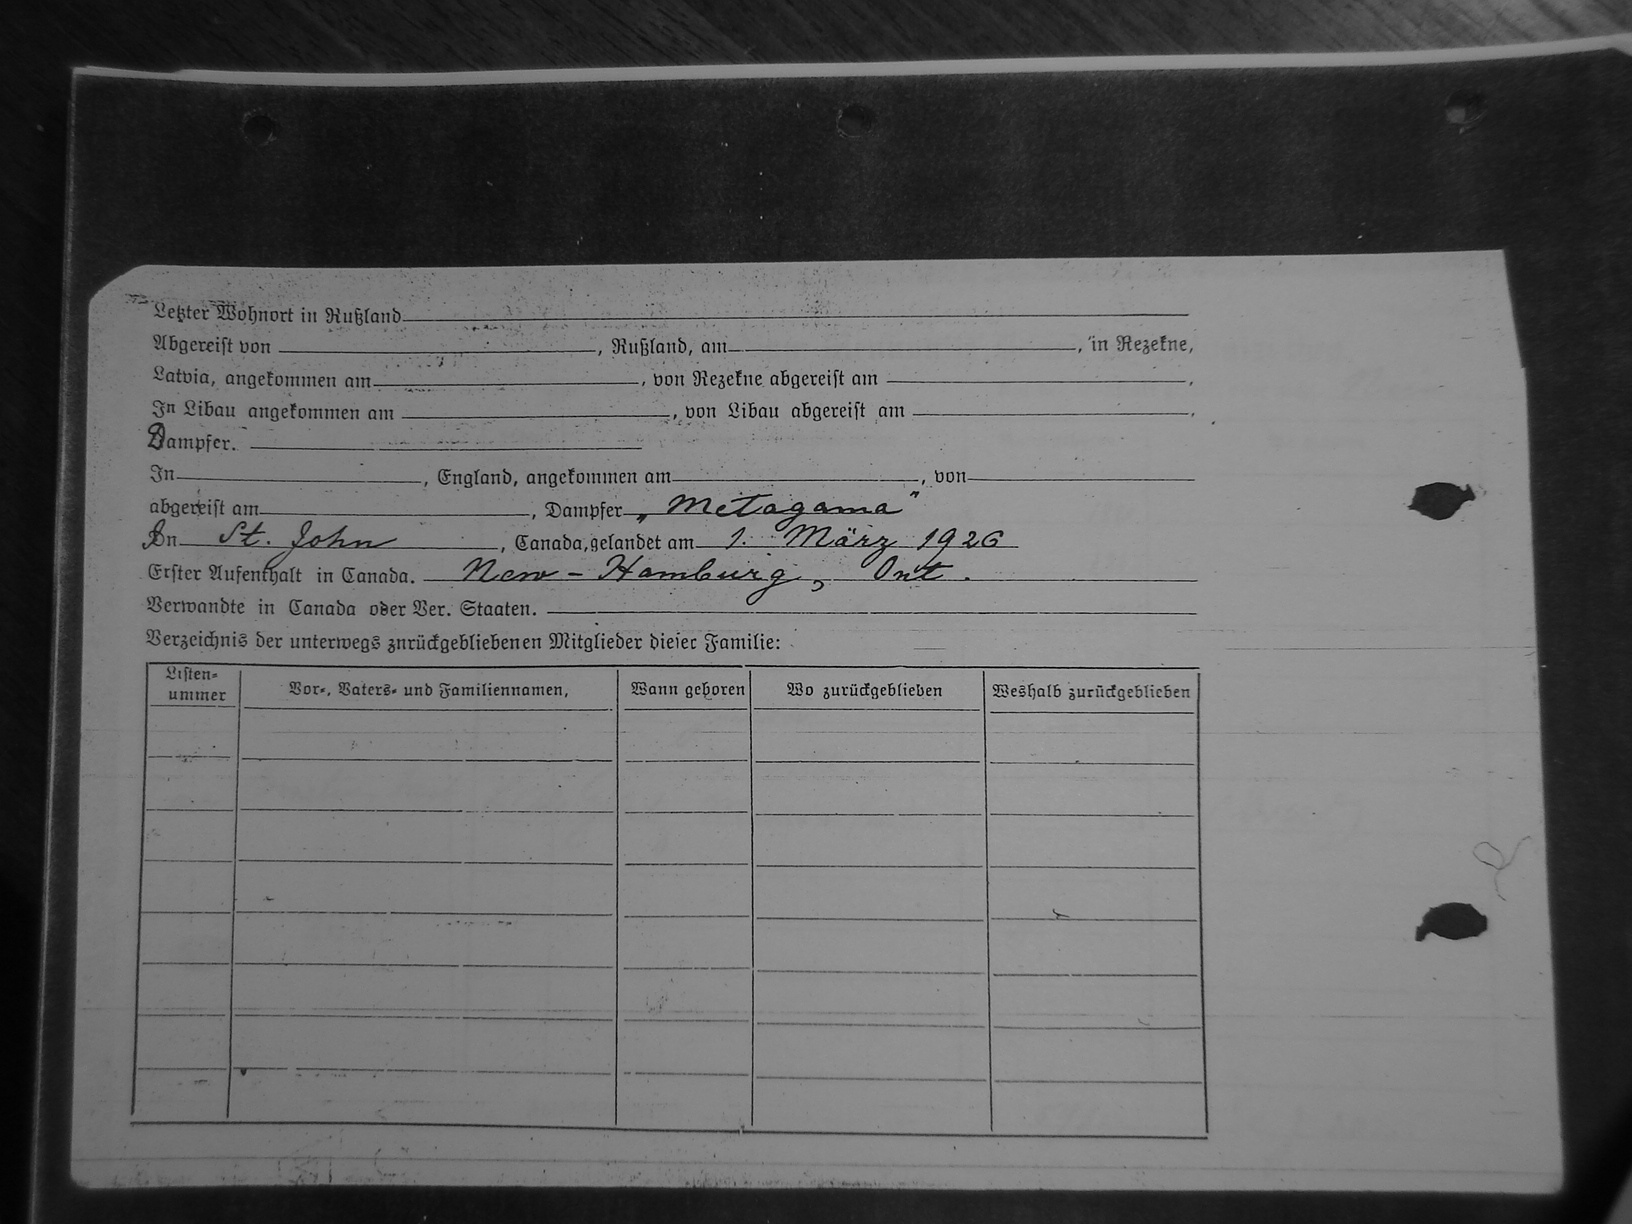 Letzter Wohnort in Rußland
Abgereist von , Rußland, am , in Rezekne,
Latvia, angekommen am , von Rezekne abgereist am ,
In Libau angekommen am , von Libau abgereist am ,
Dampfer.
In , England, angekommen am , von
abgereist am , Dampfer „Metagama"
In St. John , Canada, gelandet am 1. März 1926
Erster Aufenthalt in Canada. New-Hamburg, Ont.
Verwandte in Canada oder Ver. Staaten.
Verzeichnis der unterwegs znrückgebliebenen Mitglieder dieser Familie:
Listen-
ummer
Vor-, Vaters- und Familiennamen,
Wann geboren
Wo zurückgeblieben
Weshalb zurückgeblieben